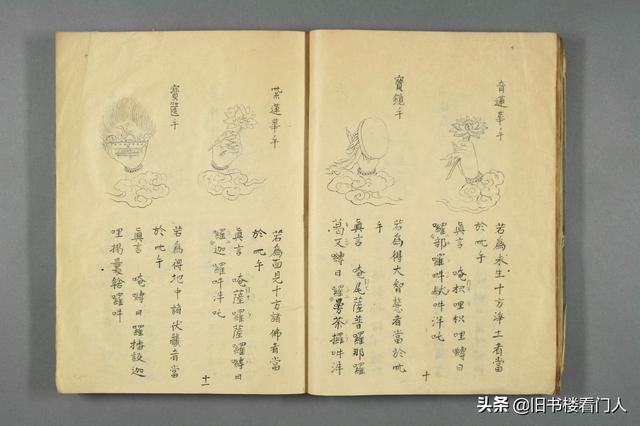 青蓮華手
若為求生十方淨土者當
於此手
真言 唵枳哩枳哩嚩日
羅部羅吽泮吒
寶鏡手
若為得大智慧者當於此
手
真言 唵尾薩普羅那羅
葛叉嚩日羅曼荼攞吽泮
十
紫蓮華手
若為面見十方諸佛者當
於此手
真言 唵薩羅薩羅嚩日
羅迦羅吽泮吒
寶篋手
若為得地中諸伏藏者當
於此手
真言 唵嚩日羅播設迦
哩揭曩羅吽
十一
头条 @旧书楼看门人